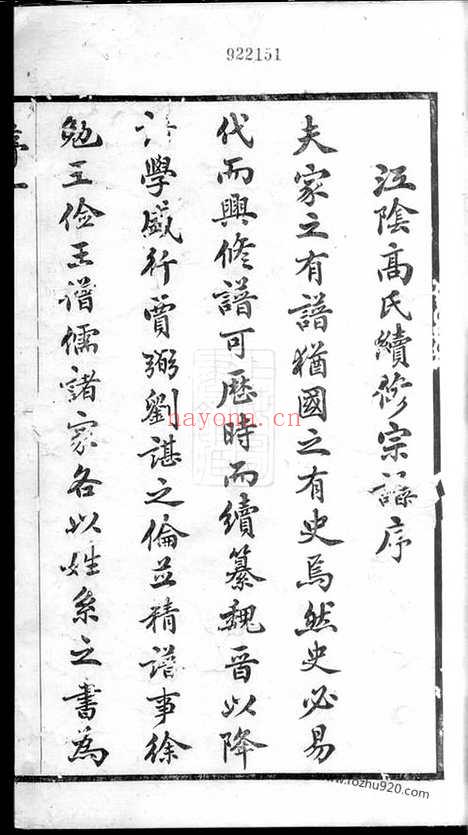 922151
江陰高氏續修宗譜序
夫家之有譜猶國之有史焉然史必易
代而興修譜可歷時而續纂魏晉以降
譜學盛行賈弼劉諶之倫並精譜事徐
勉王儉王僧儒諸家各以姓系之書為
序一
nayona.cn
www.rozhu920.com